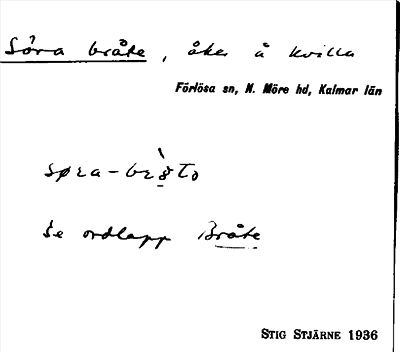 Såra bråte, åker å Kvilla
Förlösa sn, N. Möre hd, Kalmar län
Se ordlapp Bråte
STIG STJÄRNE 1936